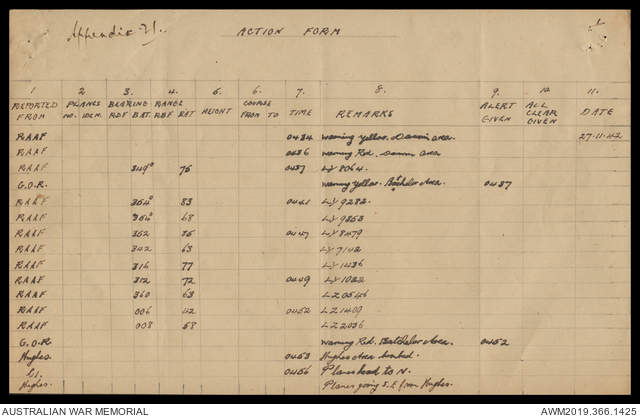 Appendix 21.
ACTION FORM
1 2 3. 4. 5. 6. 7. 8. 9. 10 11.
REPORTED FROM PLANES NO. IDEN. BEARING RDF BAT. RANGE RDF BAT HEIGHT COURSE FROM TO TIME REMARKS ALERT GIVEN ALL CLEAR GIVEN DATE
RAAF 0434 Warning yellow. Darwin area. 27.11.42
RAAF 0436 Warning Red. Darwin area
RAAF 349° 75 0437 LY 8064.
G.O.R. Warning yellow. Bachelor Area. 0437
RAAF 354° 83 0441 LY 9282.
RAAF 354° 68 LY 9853
RAAF 352 75 0447 LY 8479
RAAF 342 63 LY 7142
RAAF 316 77 LY 1436
RAAF 312 72 0449 LY 1022
RAAF 360 63 LZ 0546
RAAF 006 42 0452 LZ 1409
RAAF 008 58 LZ 2036
G.O.R. Warning Red. Batchelor Area. 0452
Hughes 0453 Hughes Area bombed.
0456 Planes head to N.
Hughes. Planes going S.E from Hughes.
AUSTRALIAN WAR MEMORIAL AWM2019.366.1425